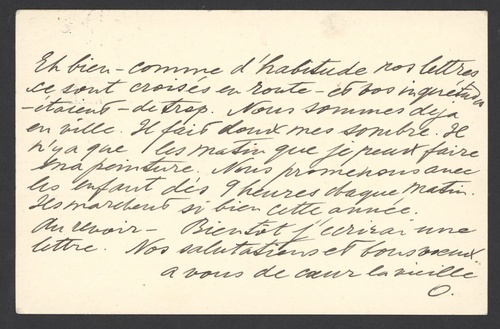 Eh bien - comme d'habitude nos lettres
se sont croisés en route - et vos inquiétudes
- étaient - de trop. Nous sommes deja
en ville. Il fait doux mes sombre. Il
n'ya que les matin que je peux faire
ma peinture. Nous promenons avec
les enfant dès 9 heures chaque matin.
Ils marchent si bien cette année.
Au revoir - Bientôt j'ecrirai une
lettre. Nos salutations et bons voeux
a vous de cœur la vieille
O.